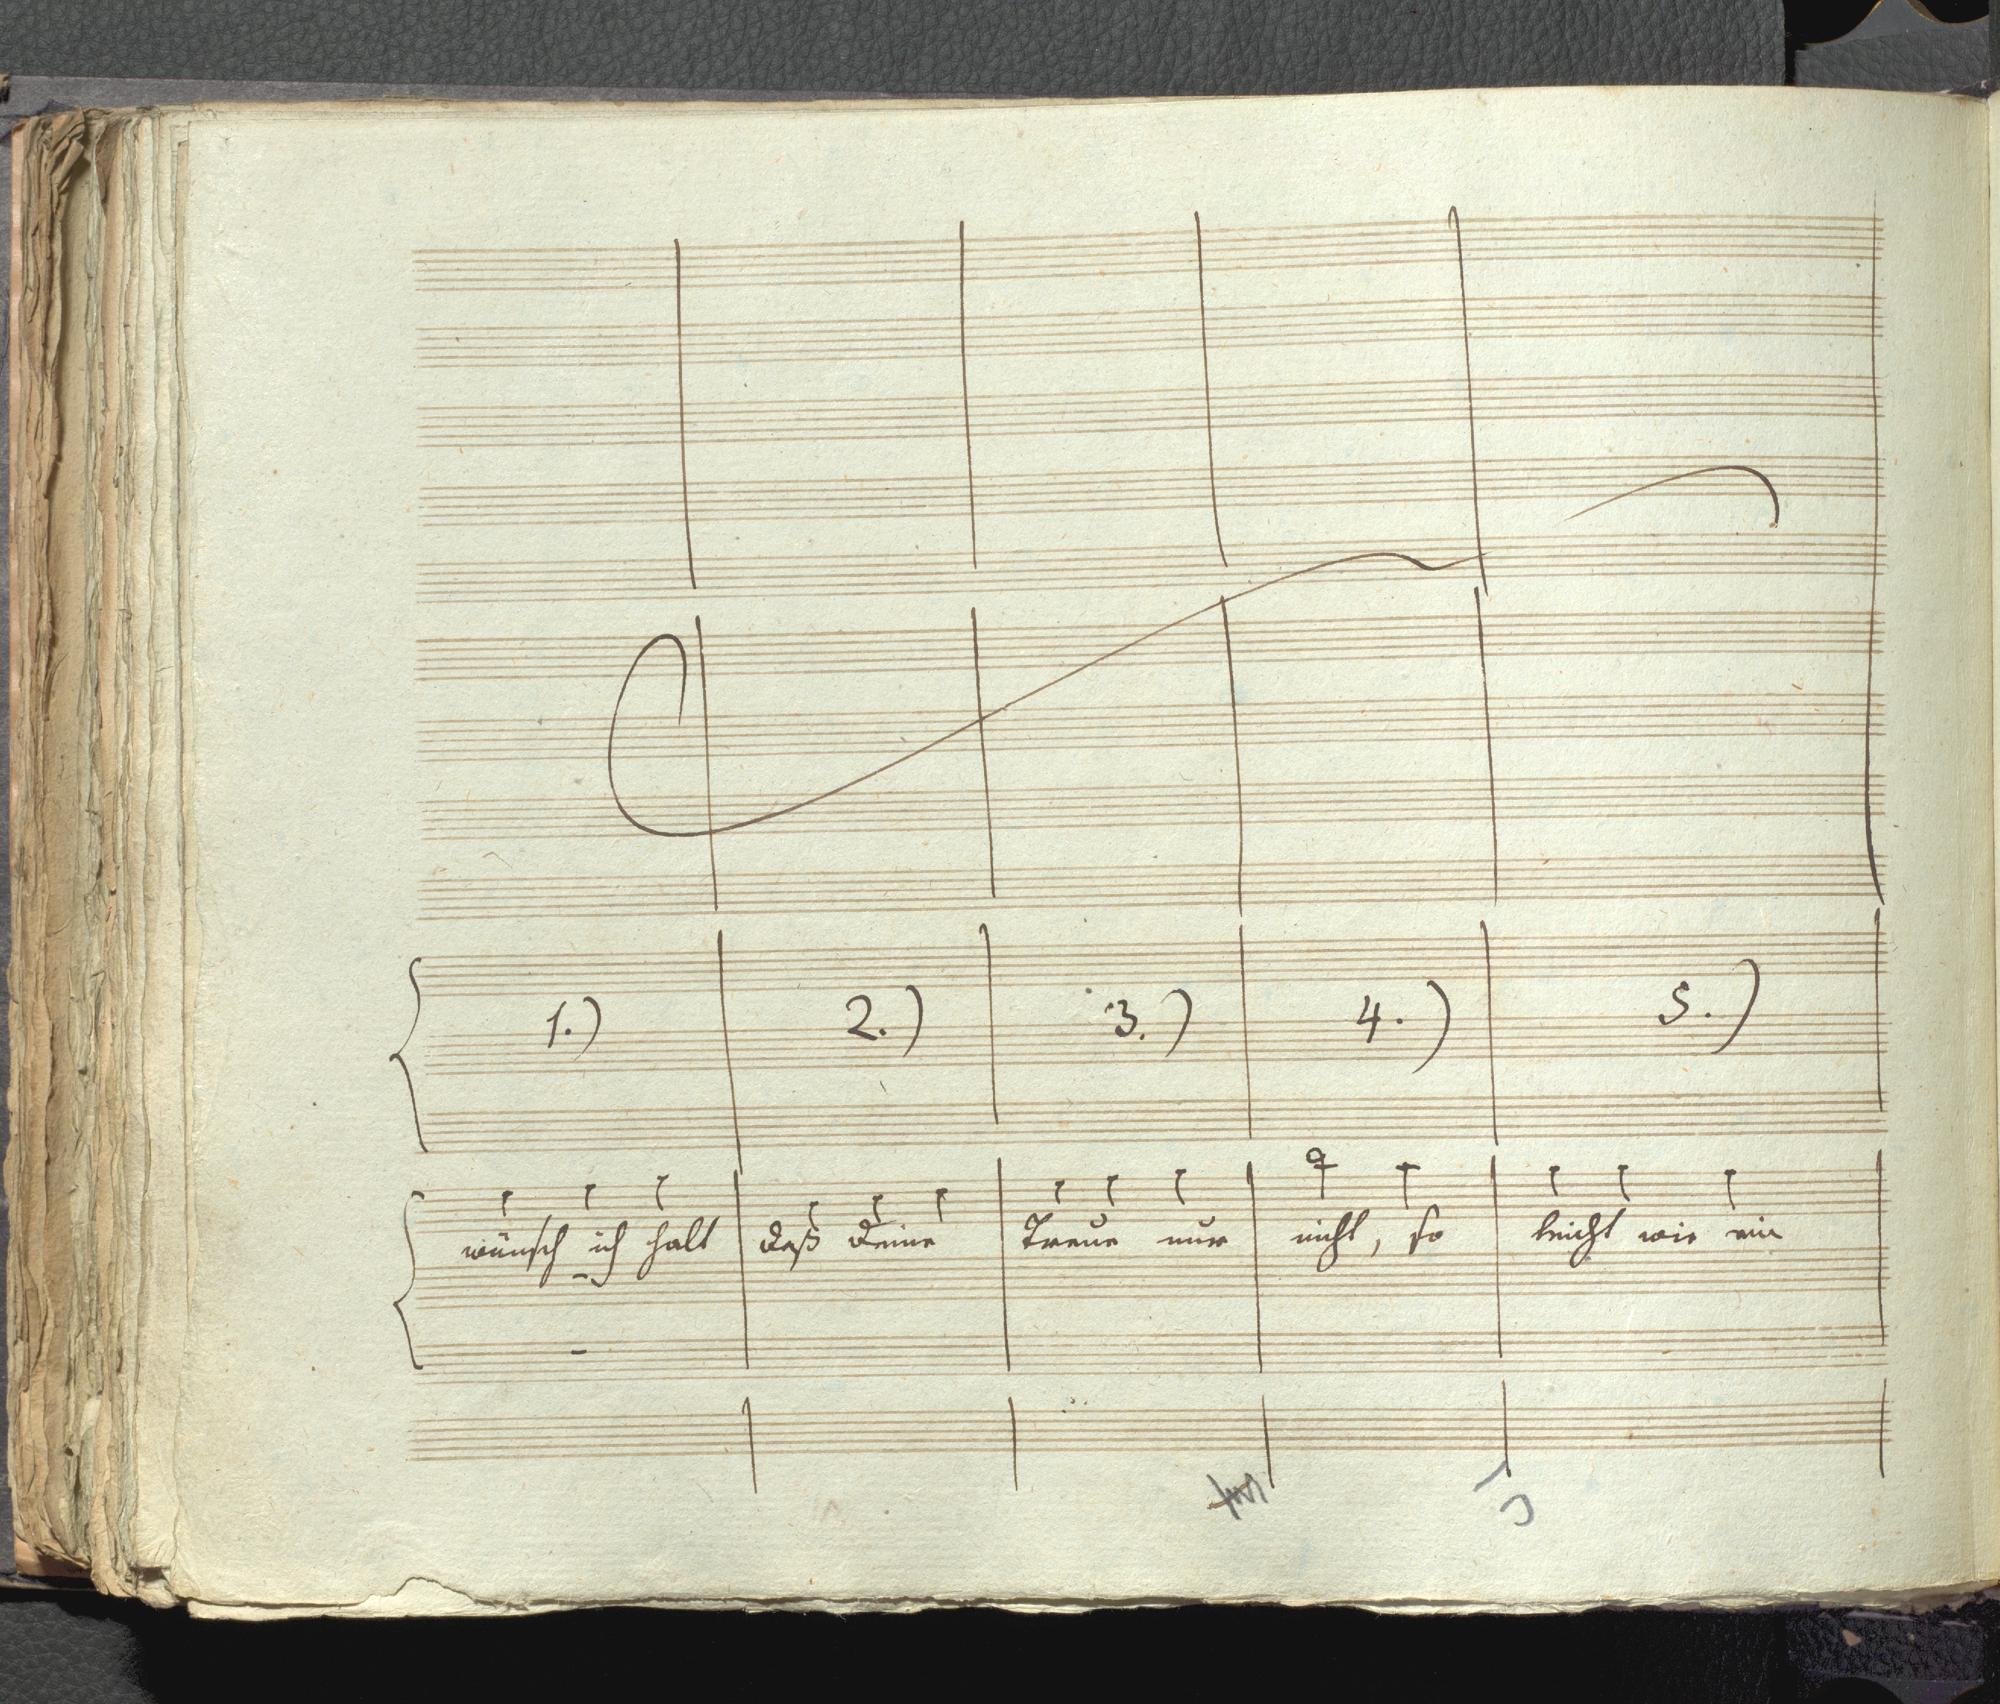 1.) 2.) 3.) 4.) 5.)
wünsch ich halt daß deine Treue nur nicht, so leicht wie ein